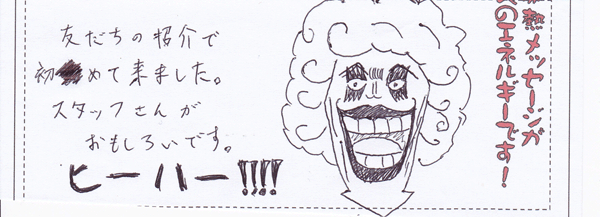 友だちの紹介で
初めて来ました。
スタッフさんが
おもしろいです。
ヒーハー!!!!
熱メッセージが
のエネルギーです!